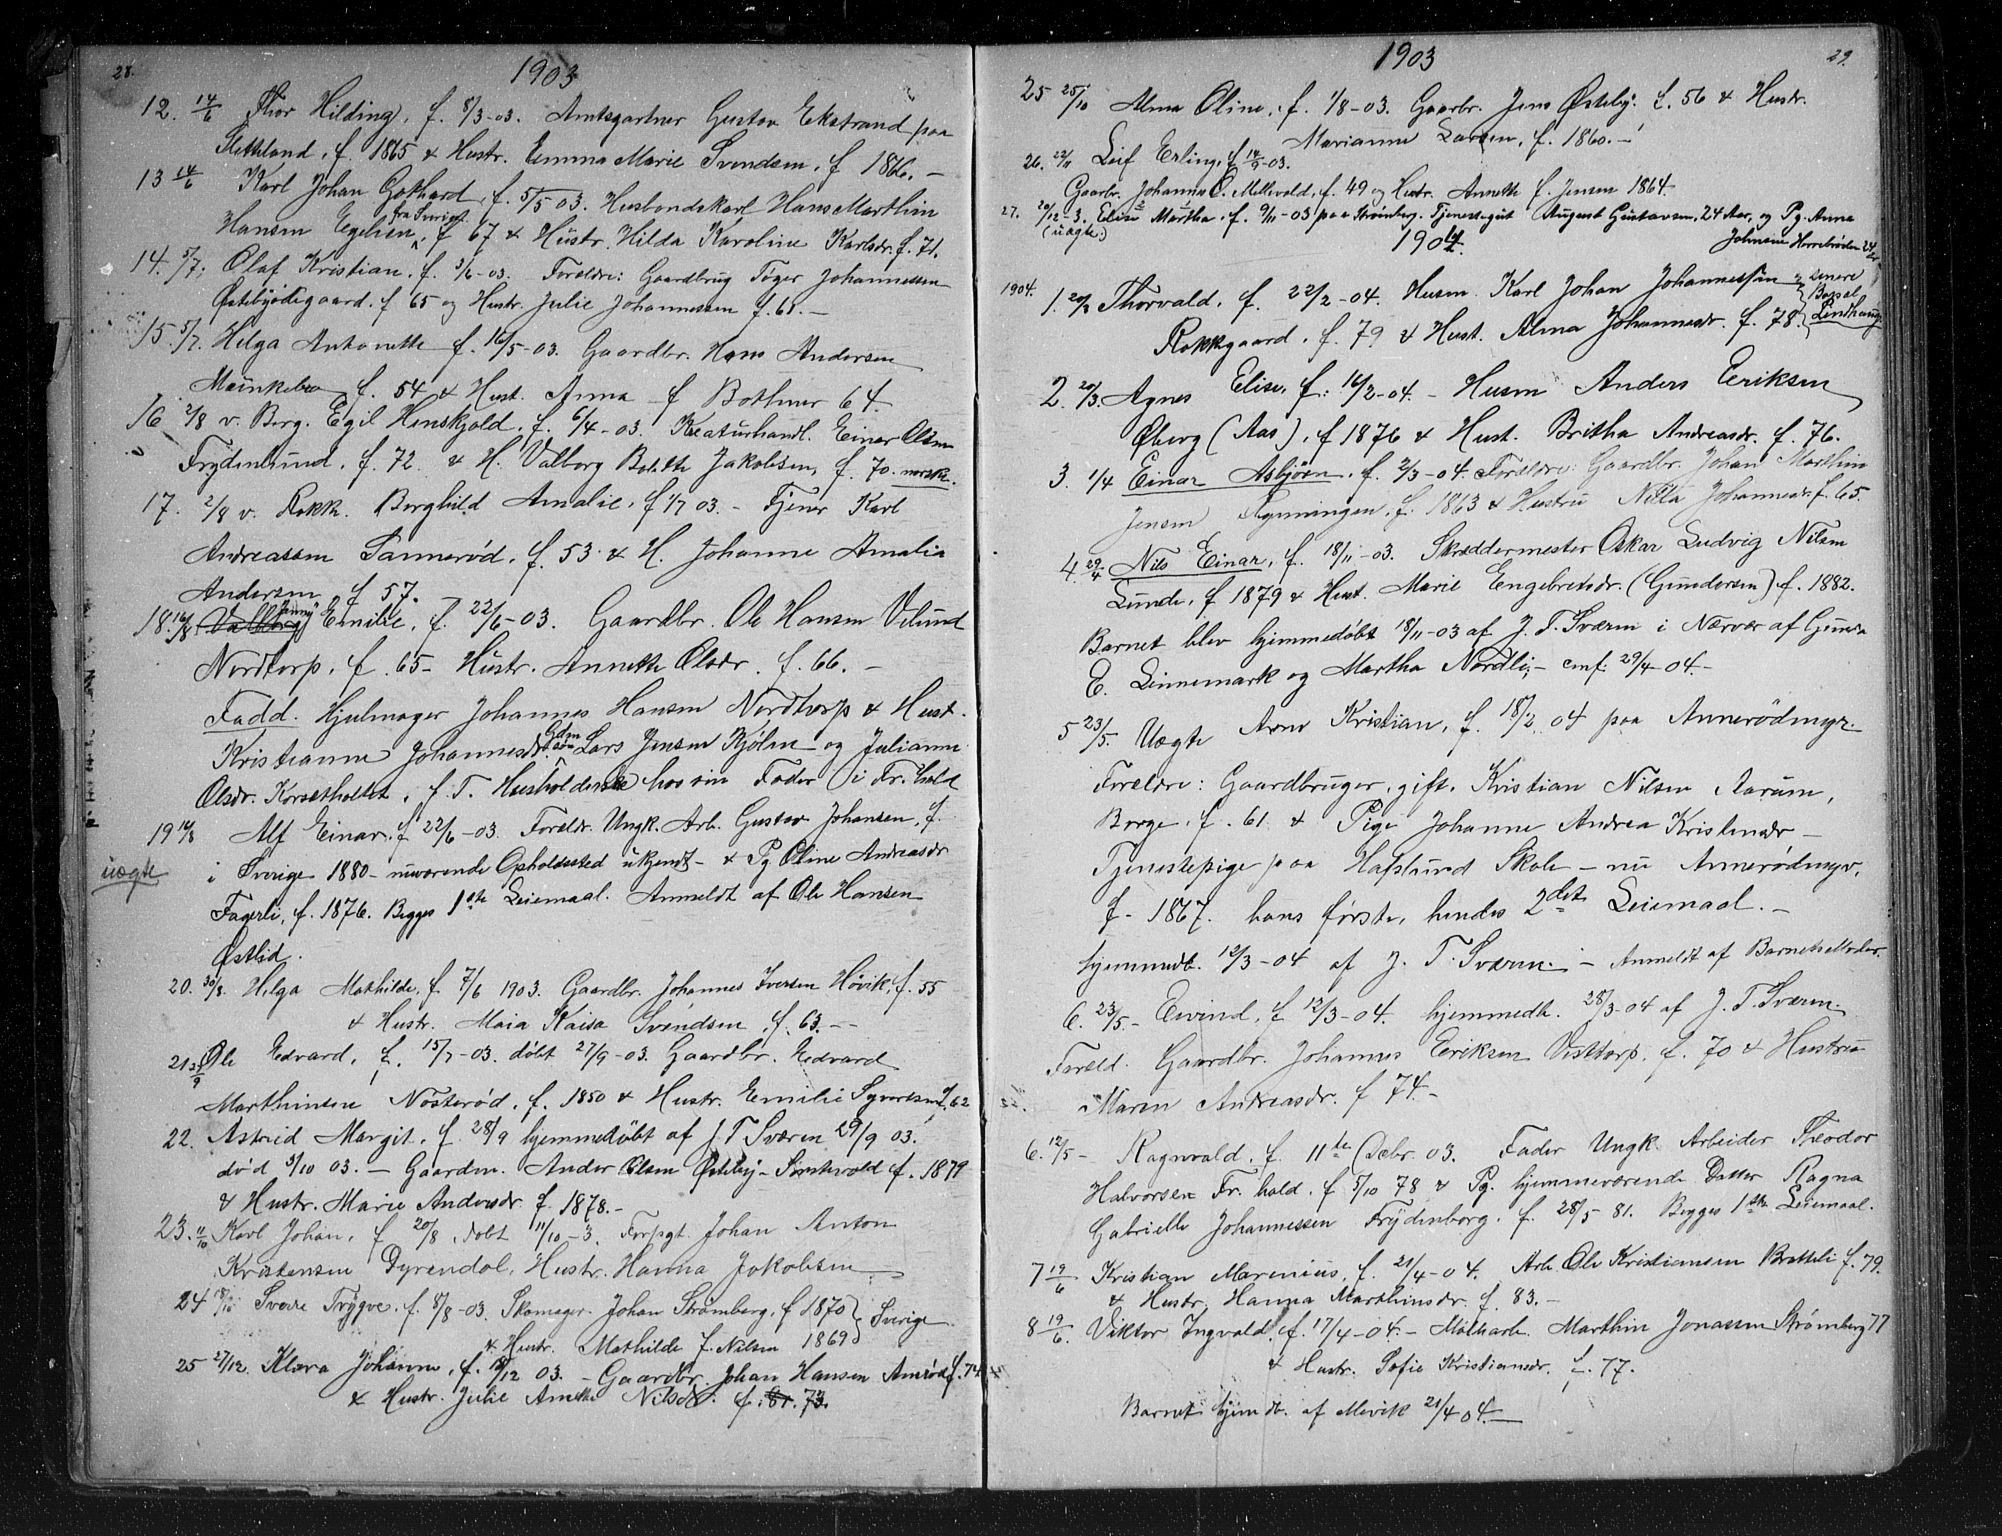 28.
1903
12. 14/6 Thor Hilding, f. 8/3-03. Amtsgartner Gustav Ekstrand paa
Sletteland, f. 1865 & Hustr. Emma Marie Svendsen, f 1866. –
13 14/6 Karl Johan Gothard, f. 5/5 03. Husbondskarl Hans Marthin
Hansen Egelien, fra Sverige f 67 & Hustr. Hilda Karoline Karlsdr. f. 71.
14. 5/7. Olaf Kristian, f. 3/6-03. Foreldre: Gaardbrug Tøger Johannessen
Østebyødegaard. f 65 og Hustr. Julie Johannessen f. 61. –
15. 5/7. Helga Antonette f. 16/5-03. Gaardbr. Hans Andersen
f. 54 & Hust. Anna f Bothner 64.
16 2/8 v. Berg. Egil Henskjold, f. 6/4-03. Kreaturhandl. Einar Olsen
Frydenlund, f. 72. & H. Valborg Bolette Jakobsen, f. 70. norske.
17. 2/8 v. Rokk. Borghild Amalie, f 1/7 03. – Tjener Karl
Andreassen Sannerød, f. 53 & H. Johanne Amalia
Andersen f 57.
18. 16/8. Valborg Jenny Emilie, f. 22/6-03. Gaardbr. Ole Hansen Velund
Nordtorp, f. 65 – Hustr. Annette Olsdr. f. 66. –
Fadd. Hjulmager Johannes Hansen Nordtorp & Hust.
Kristianne Johannesdr. Lars Jensen Kjølen og Julianne
Olsdr. Korsetholtet, f. T. Husholderske hos sin Fader i Fr. hald
19 16/8 Alf Einar, f 22/6-03. Foreldr. Ungk. Arb. Gustav Johansen, f.
uægte
i Sverige 1880 – nuværende Opholdssted ukjendt – & Pg Oline Andreasdr
Fagerli, f. 1876. Begges 1ste Leiemaal. Anmeldt af Ole Hansen
Østlid.
20. 30/8. Helga Mathilde, f. 7/6 1903. Gaardbr. Johannes Iversen Høvik, f. 55
& Hustr. Maia Kaisa Svendsen, f. 63. – –
21 27/9 Ole Edvard, f. 15/7-03. døbt 27/9-03. Gaardbr. Edvard
Marthinsen Nøsterød, f. 1850 & Hustr. Emilie Syversen f. 62
22. Astrid Margit, f. 28/9 hjemmedøbt af J. T Sværen 29/9 03.
død 3/10 03. – Gaardm. Ander Olsen Østeby – f. 1879
& Hustr. Marie Andersdr f. 1878. –
23. 11/10 Karl Johan, f 20/8, døbt 11/10-3. Forpgt. Johan Anton
Kristensen Dyrendal, Hustr. Hanna Jakobsen
24 18/10 Sverre Trygve, f. 8/8-03. Skomager. Johan Strømberg, f 1870 } Sverige
& Hustr. Mathilde f. Nilsen 1869
25 27/12. Klara Johanne, f. 12/12 03. – Gaardbr. Johan Hansen Amrød f. 74
& Hustr. Julie Anette Nilsdr. f. 73.
1903
29.
25 25/10 Alma Oline, f. 1/8-03. Gaarbr. Jens Østeby f. 56 & Hustr.
Marianne Larsen, f. 1860. –
26. 22/11 Leif Erling, f 14/9-03.
Gaarbr. Johannes O. Mellevold, f. 49 og Hustr. Annette f. Jensen 1864.
27. 20/12-3. Elise Martha, f. 9/11-03 paa Strømberg. Tjenestegut August Gustavsen, 24 Aar, og Pg. Anna
(uægte.)
Johnsine Horrebrøden 24 Ar
1904.
1904.
1. 20/3 Thorvald, f. 22/2-04. Husm. Karl Johan Johannessen } senere Bossel Lindhaug
Rokkgaard, f. 79 & Hust. Alma Johannesdr. f. 78.
2. 20/3. Agnes Elise, f: 16/2-04. – Husm Anders Eeriksen
Øberg (Aas), f 1876 & Hust. Britha Andreasdr. f. 76.
3. 1/4 Einar Asbjørn, f. 2/3-04. Foreldre: Gaardbr. Johan Marthin
Jensen f. 1863 & Hustru Nilla Johannesdr. f. 65.
4. 29/4 Nils Einar, f. 18/11-03. Skræddermester Oskar Ludvig Nilsen
Lunde, f 1879 & Hust. Marie Engebretsdr. (Gundersen) f. 1882.
Barnet blev hjemmedøbt 18/11-03 af J. T. Sværen i Nærvær af
E. Linnemark og Martha Nordli, – cmf: 29/4-04. –
5 23/5. Uægte Arne Kristian, f. 18/2 04 paa Annerødmyr.
Foreldre: Gaardbruger, gift, Kristian Nilsen Aarum,
Borge, f. 61. & Pige Johanne Andrea Kristensdr –
Tjenestepige paa Hafslund Skole – nu Annerødmyr,
f. 1867. hans første, hendes 2det Leiemaal. –
hjemmedb. 12/3-04 af J. T. Sværen. – Anmeldt af Barnets Moder.
6. 23/5. – Eivind, f 12/3-04. hjemmedb. 28/3-04 af J. T. Sværen.
Foreld. Gaardbr. Johannes Eeriksen Visttorp, f. 70 & Hustru
Maren Andreasdr. f 74. –
6. 12/5 – Ragnvald, f. 11te Debr. 03. Fader Ungk. Arbeider Theodor
Halvorsen Fr. hald, f. 5/10 78 & Pg. hjemmeværende Datter Ragna
Gabrielle Johannessen Frydenborg, f. 28/5 81. Begges 1ste Leiemaal.
7 19/6 Kristian Marenius, f. 21/4-04. Arb. Ole Kristiansen Bratteli f. 79.
& Hustr. Hanna Marthinsdr. f. 83. –
8 19/6. Viktor Ingvald, f. 17/4-04. – Marthin Jonassen Strømberg 77
& Hustr. Sofie Kristiansdr. f. 77.
Barnet hjemdb. af Mevik 21/4 04. –